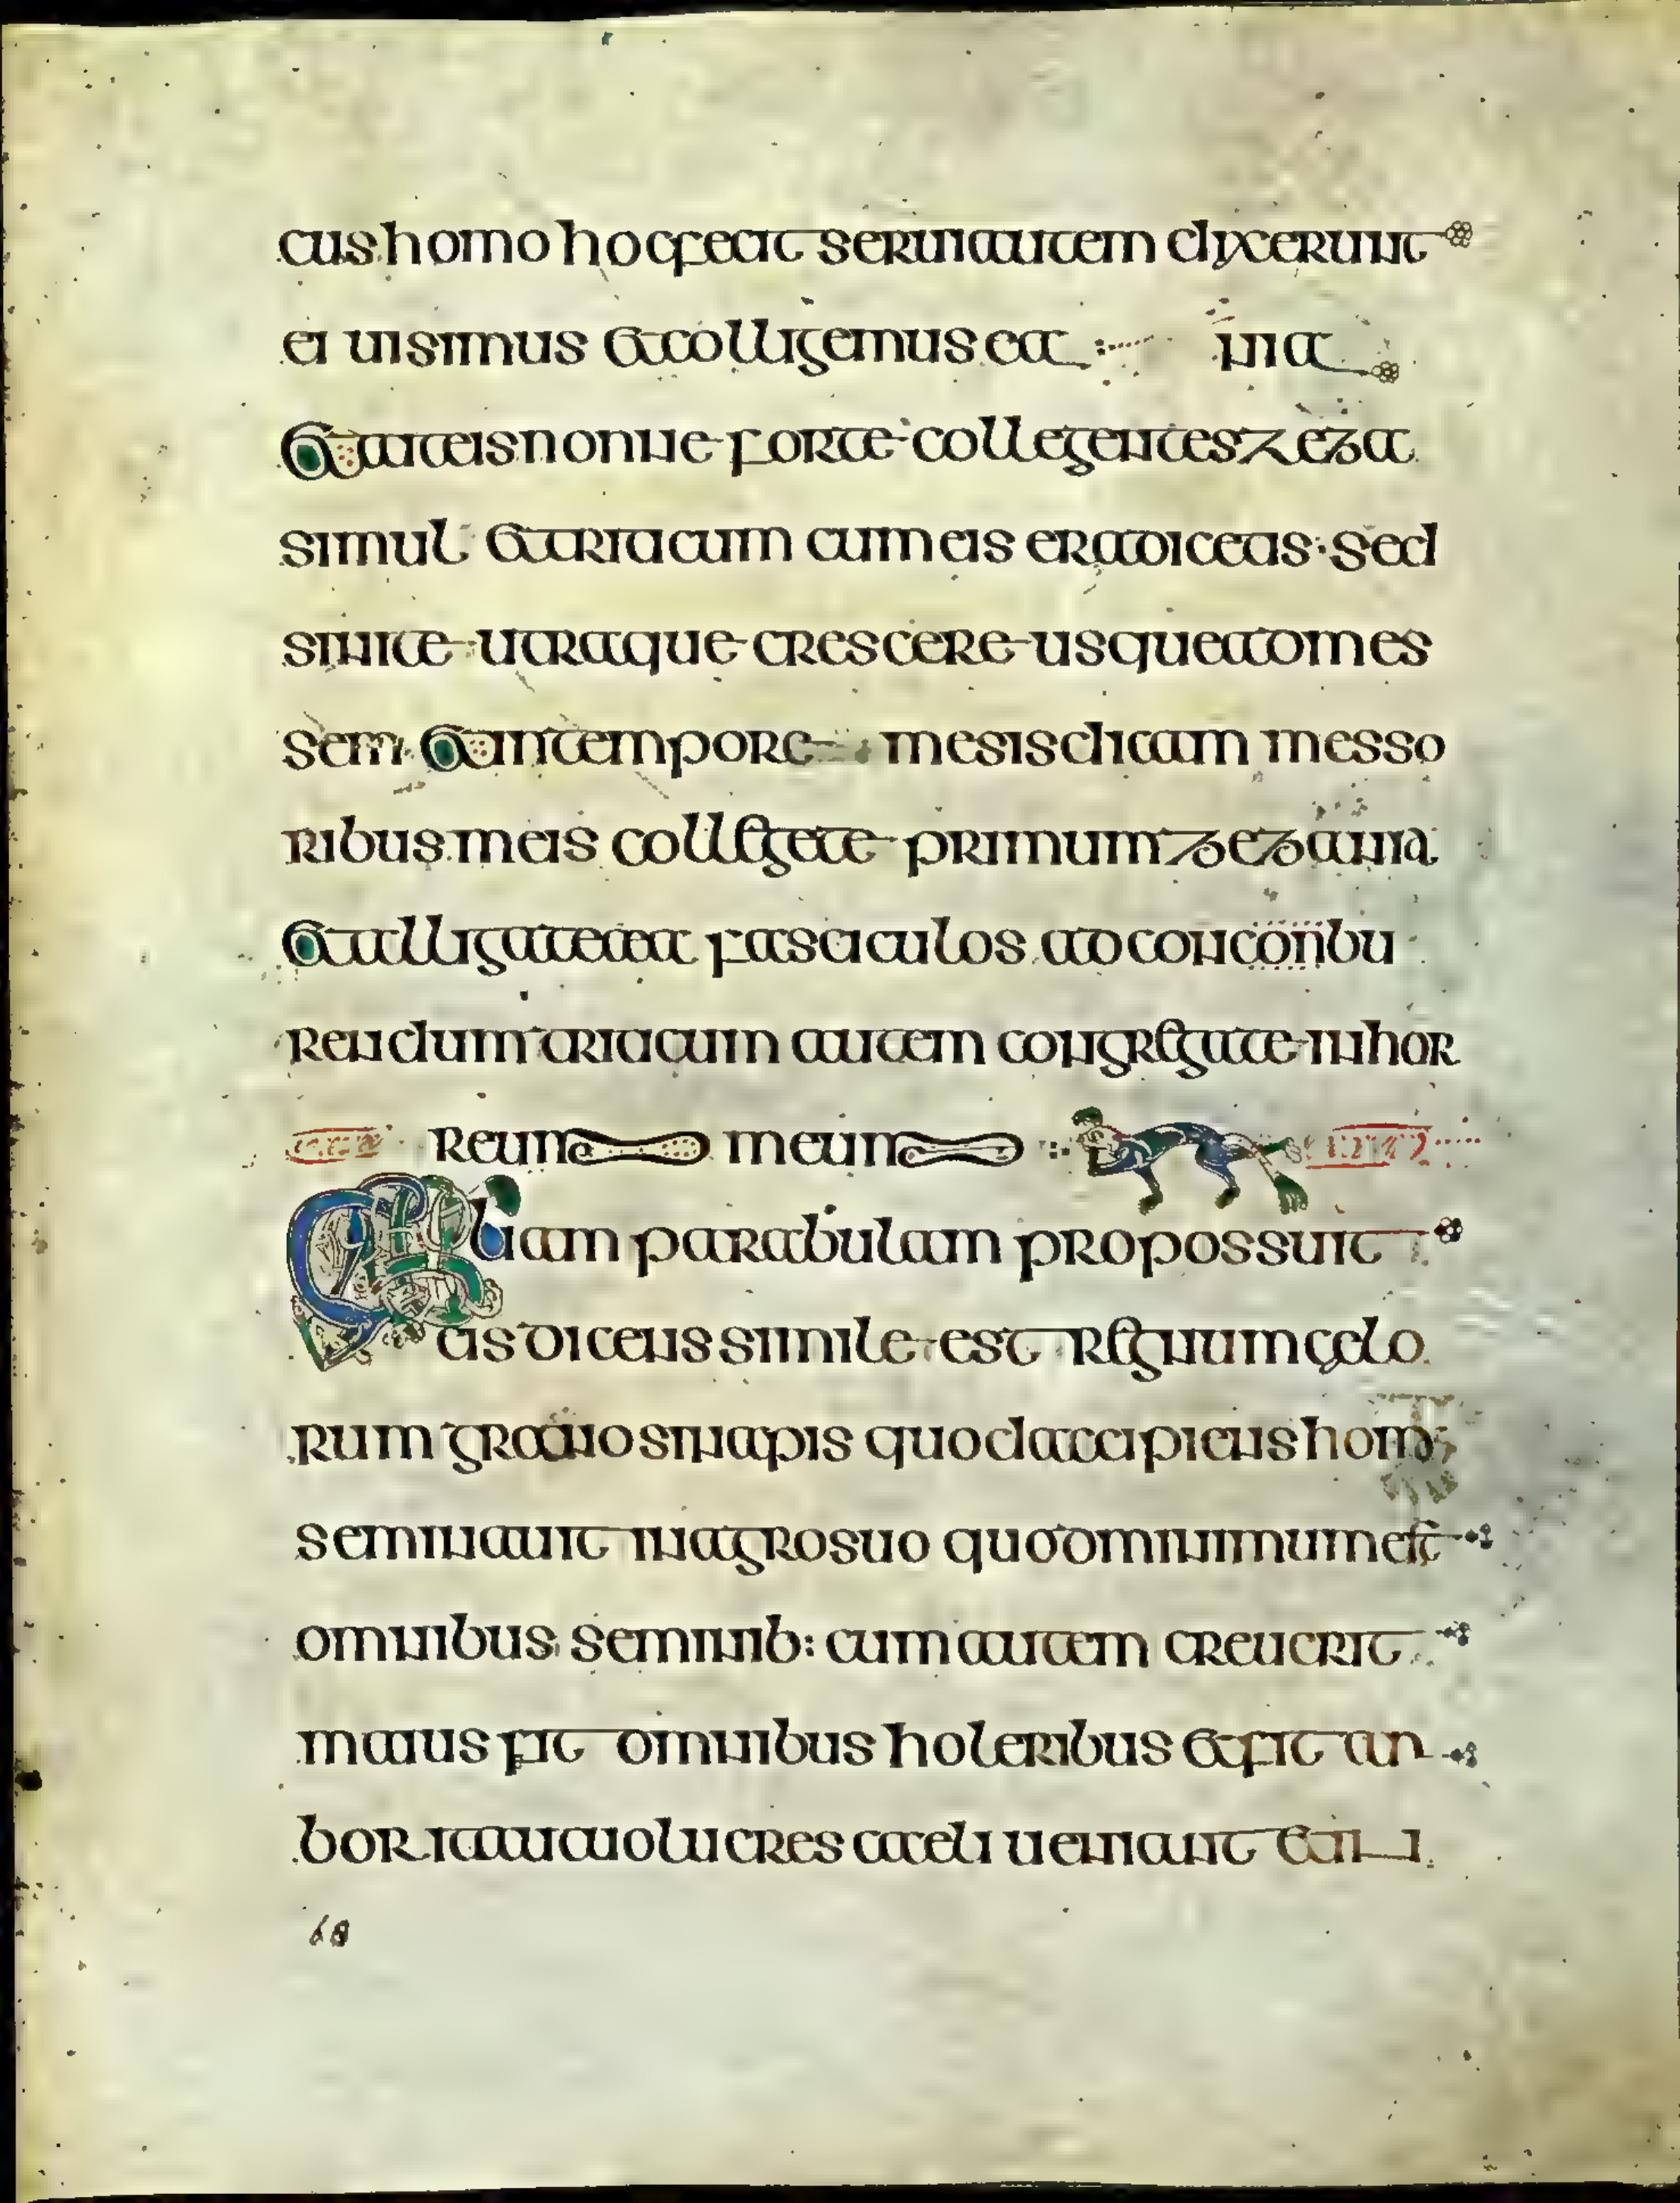 cus homo hoc fecit serui autem dixerunt
ei uis imus et colligemus ea nia
Et ait eis non ne forte collegentes zeza
simul et triticum cum eis eradicetis · sed
sinite utraque crescere usque ad mes
sem et in tempore mesis dicam messo
ribus meis collegete primum zezania
Et alligate ea fasciculos ad conconbu
rendum triticum autem congregate in hor
reum meum
Aliam parabulam propossuit
eis dicens simile est regnum cęlo
rum grano sinapis quod accipiens homo
seminauit in agro suo quod minimum est
omnibus seminib: cum autem creuerit
maius fit omnibus holeribus et fit ar
bor ita ut uolucres caeli ueniant et in
68